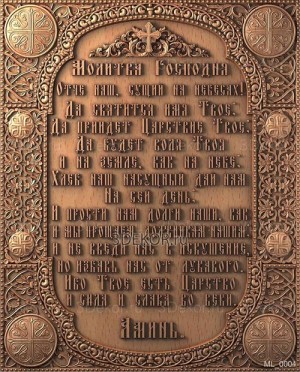 Молитва Господня
Отче наш, сущий на небесах!
Да святится имя Твое.
Да приидет Царствие Твое.
Да будет воля Твоя
и на земле, как на небе.
Хлеб наш насущный дай нам
На сей день.
И прости нам долги наши, как
и мы прощаем должникам нашим.
И не введи нас в искушение,
но избавь нас от лукавого.
Ибо Твое есть Царство
и сила и слава во веки.
Аминь.
3DEKOR.ru
ML_0004